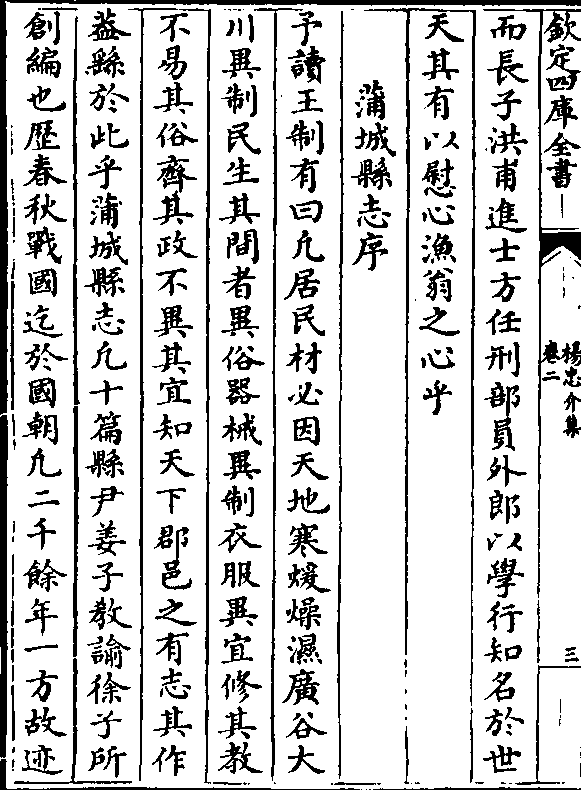 欽定四庫全書
楊忠介集
卷二
三
而長子洪甫進士方任刑部員外郎以學行知名於世
天其有以慰心漁翁之心乎
蒲城縣志序
予讀王制有曰凢居民材必因天地寒煖燥濕廣谷大
川異制民生其間者異俗器械異制衣服異宜修其教
不易其俗齊其政不異其宜知天下郡邑之有志其作
益繇於此乎蒲城縣志凢十篇縣尹姜子教諭徐子所
創編也歷春秋戰國迄於國朝凢二千餘年一方故迹